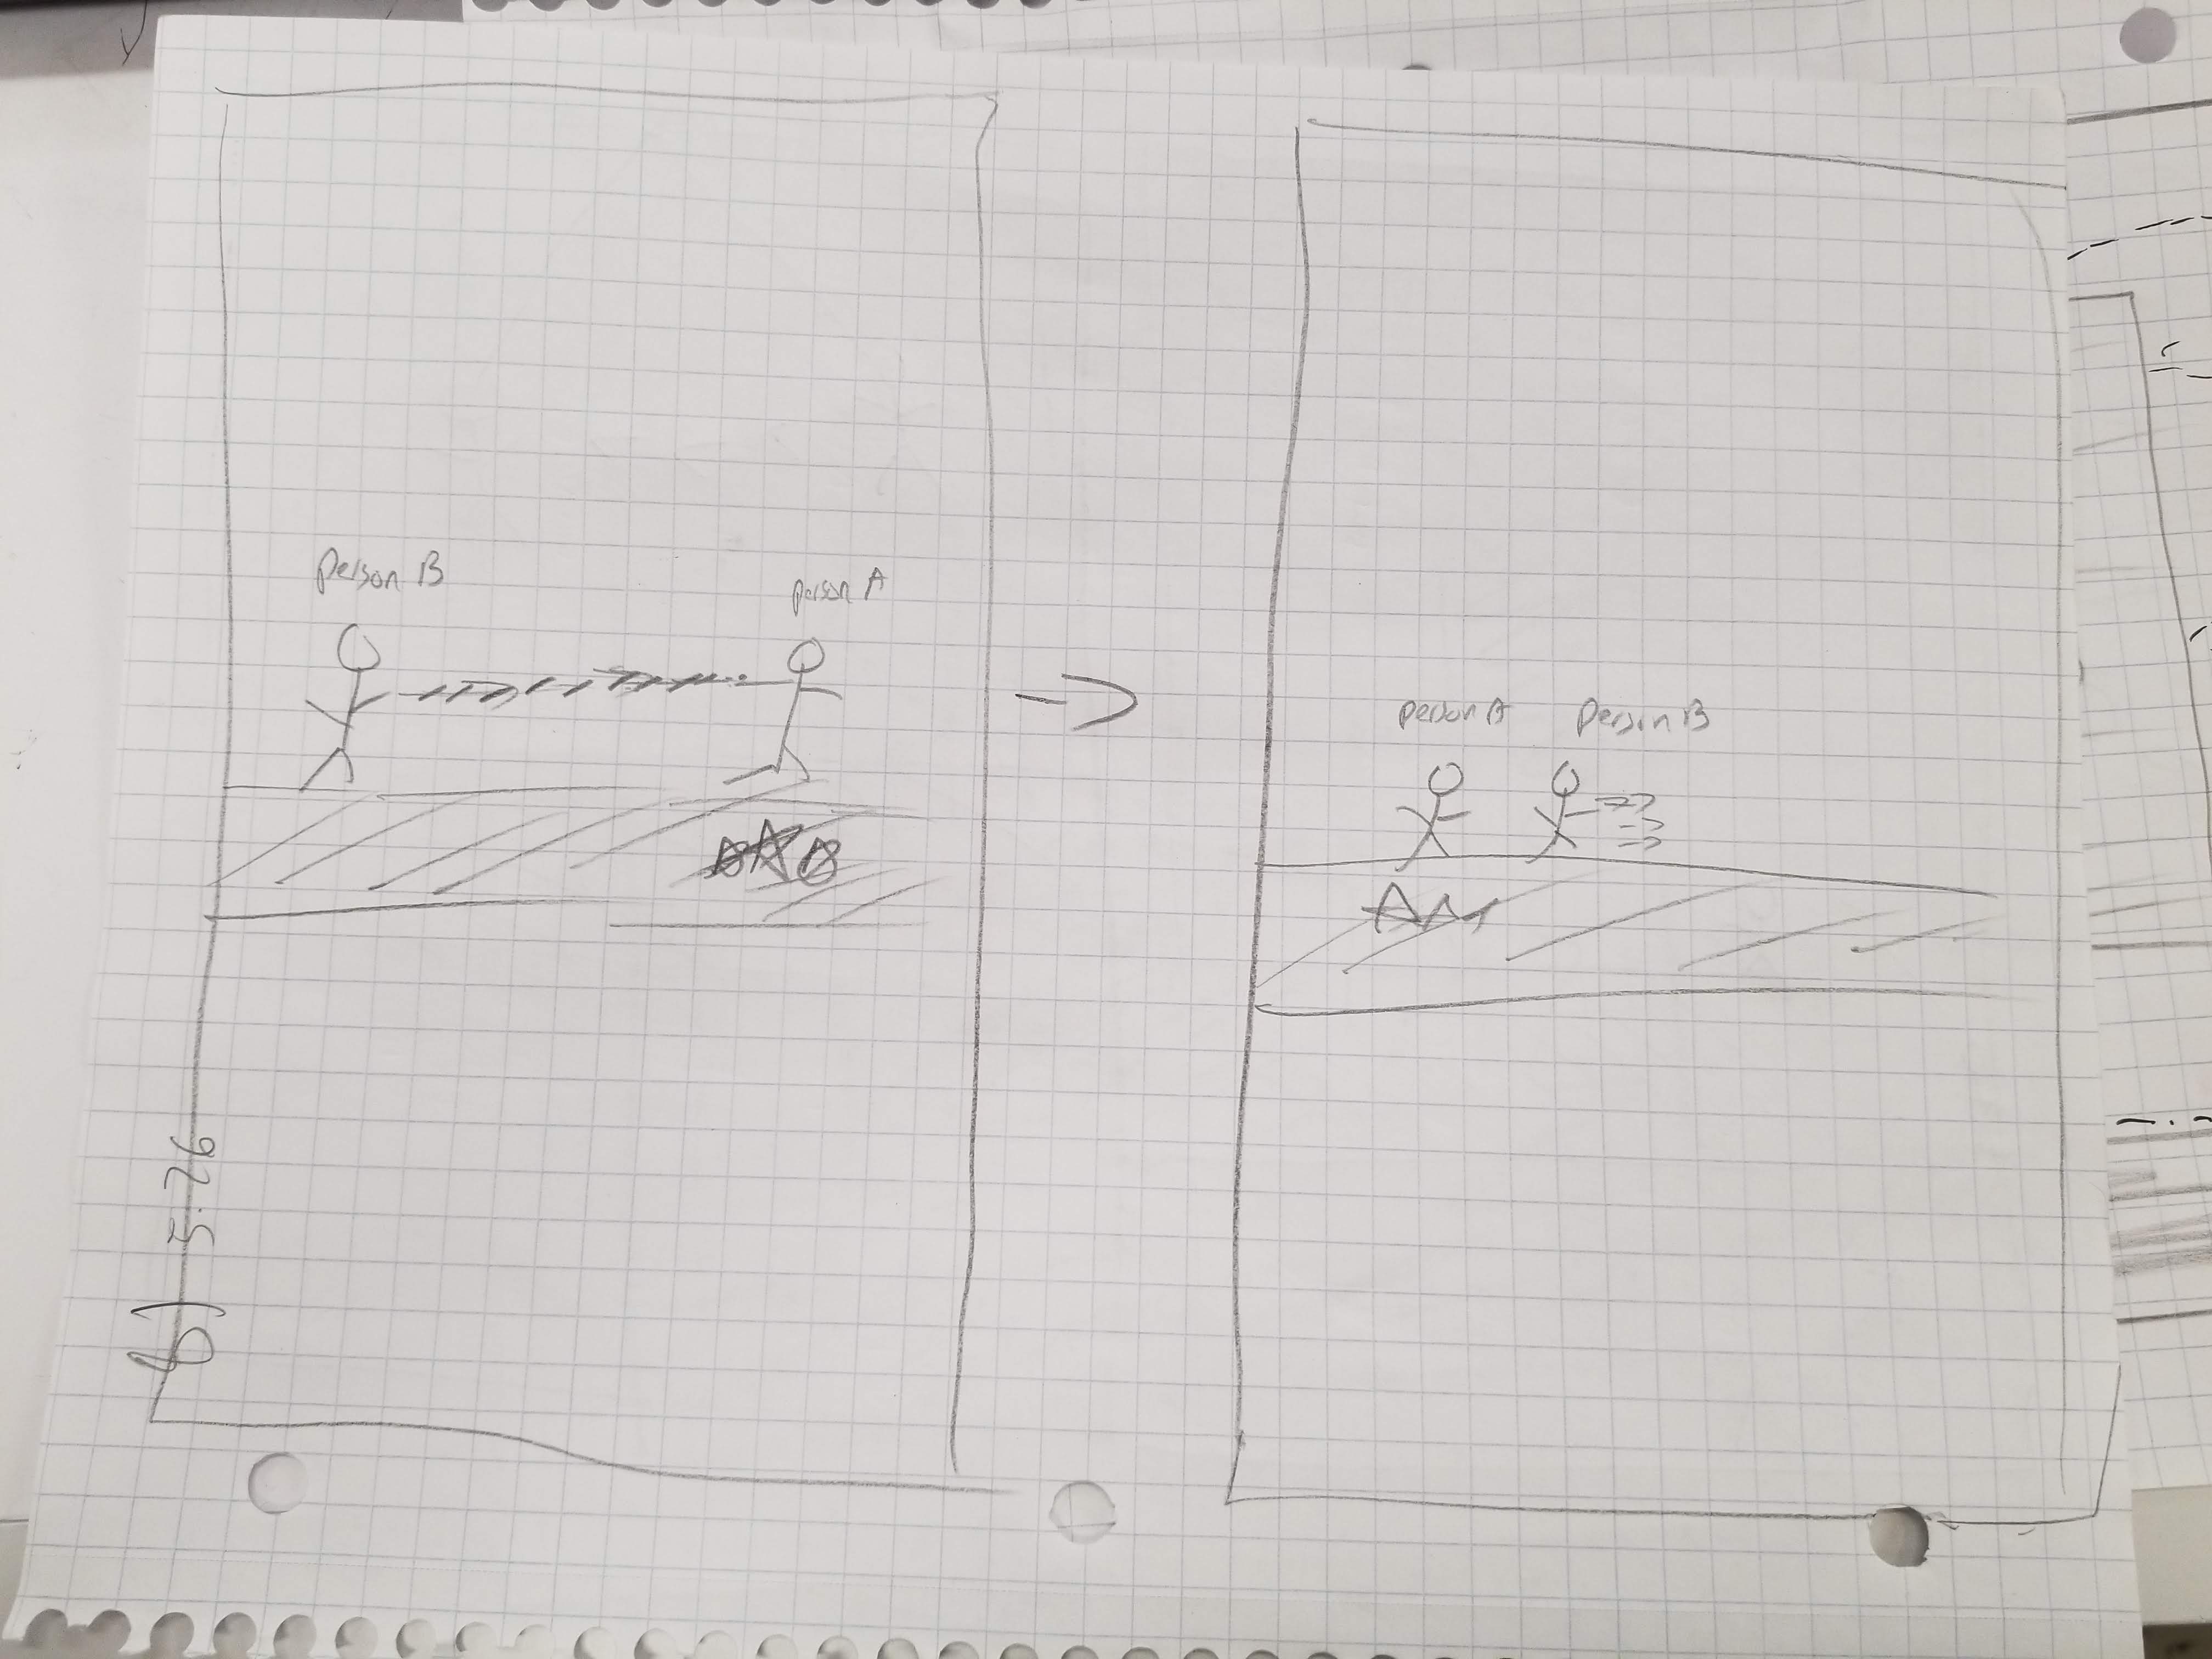 8) 5.26
Person B
person A
person
Person B